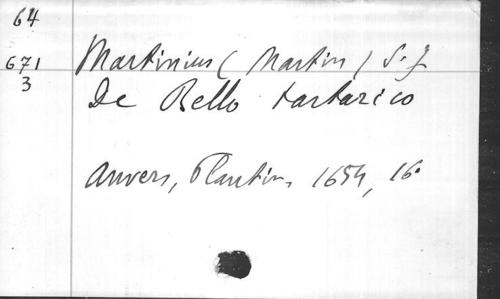 64
671
3
Martinius (Martin) S.J
De Bello tartarico
Anvers, Plantin, 1654, 16°